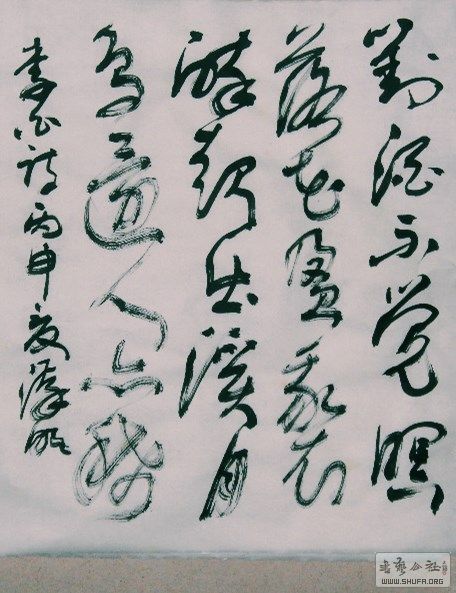 對酒不覺暝
落花盈我衣
醉起步溪月
鳥還人亦稀
李白詩丙申夏
書藝公社
WWW.SHUFA.ORG